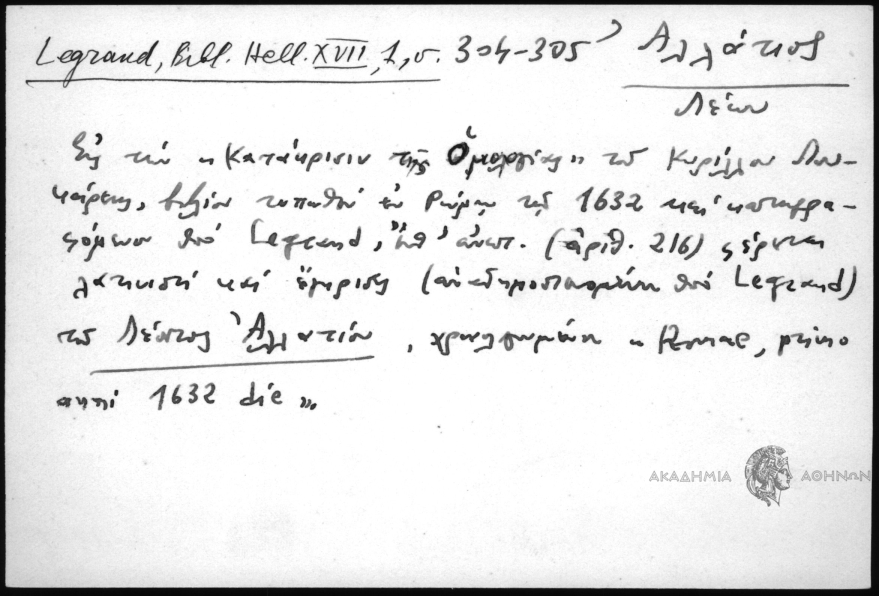 Legrand, Bibl. Hell. XVII, 1, σ. 304-305
Ἀλλάτιος
Λέων
Εἰς τὴν «Κατάκρισιν τῆς Ὁμολογίας» τοῦ Κυρίλλου Λου-
κάρεως, βιβλίον τυπωθὲν ἐν Ρώμῃ τῷ 1632 καὶ καταγρα-
φόμενον ὑπὸ Legrand, ἔνθ' ἀνωτ. (ἀριθ. 216) φέρεται
λατινιστὶ καὶ ἔγκρισις (ἀναδημοσιευομένη ὑπὸ Legrand)
τοῦ Λέοντος Ἀλλατίου, χρονολογουμένη « Romae,
anni 1632 die ».
ΑΚΑΔΗΜΙΑ ΑΘΗΝΩΝ